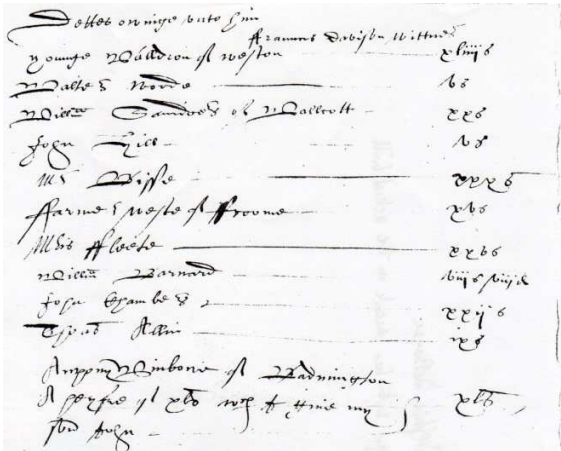 Dettes owinge unto him
ffrauncis Davison wittnes
younge Walldron of weston xliiijs
Walter Worde vs
Willm Sandves of Wallcott xxs
John Hill vs
Mr Bisse xxxs
ffarmer Weste of ffroome xvs
Mris ffleete xxvs
Willm Barnard viijs viijd
John Chamber xxijs
Thomas Allin ixs
Anthony Simborne of Badmington
A of xls wch A my xls
John